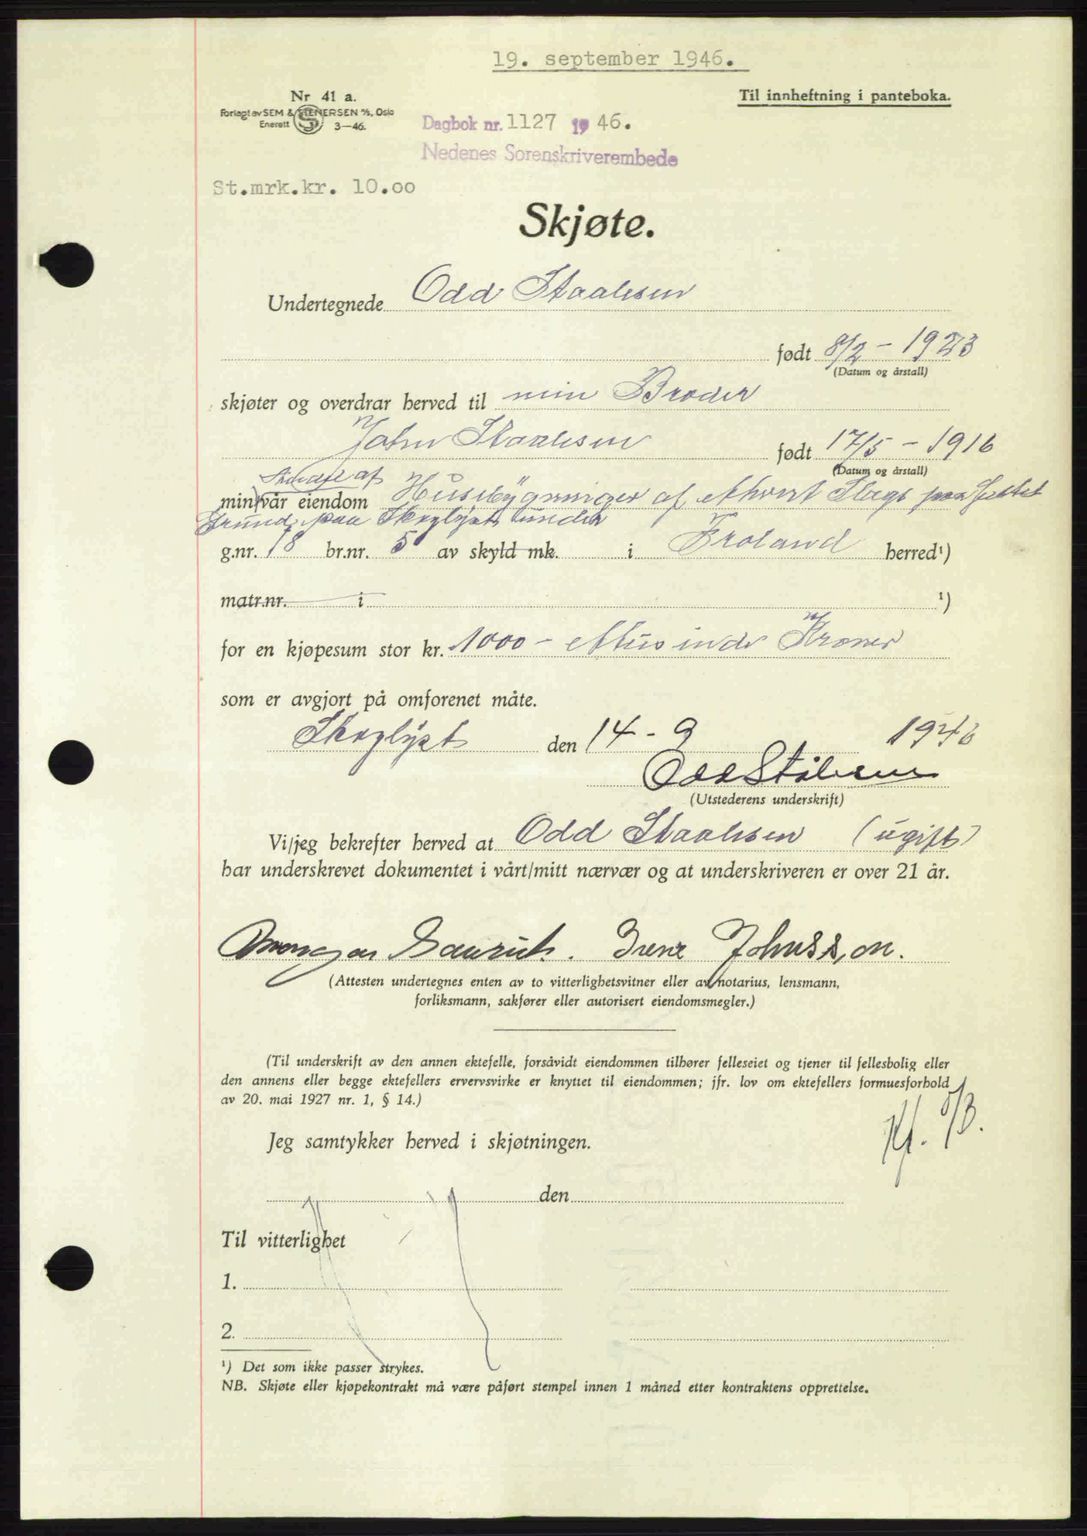 19. september 1946.
Nr 41 a.
Til innheftning i panteboka.
Forlagt av SEM & STENERSEN A/S, Oslo
Enerett S 3-46.
Dagbok nr. 1127 1946.
Nedenes Sorenskriverembede
St.mrk.kr. 10.oo
Skjøte.
Undertegnede Odd Staalesen
født 8/2 - 1923
(Datum og årstall)
skjøter og overdrar herved til min Broder
John Staalesen født 17/5 - 1916
(Datum og årstall)
af
min/vår eiendom Husebygninger af ethvert Slags paa
Grund paa Skoglyst under
g.nr. 78 br.nr. 5 av skyld mk. i Froland herred¹)
matr.nr. i ¹)
for en kjøpesum stor kr. 1000 - ettusinde Kroner
som er avgjort på omforenet måte.
Skoglyst den 14 - 9 1946
Odd Stålesen
(Utstederens underskrift)
Vi/jeg bekrefter herved at Odd Staalesen (ugift)
har underskrevet dokumentet i vårt/mitt nærvær og at underskriveren er over 21 år.
Johnsson.
(Attesten undertegnes enten av to vitterlighetsvitner eller av notarius, lensmann,
forliksmann, sakfører eller autorisert eiendomsmegler.)
(Til underskrift av den annen ektefelle, forsåvidt eiendommen tilhører felleseiet og tjener til fellesbolig eller
den annens eller begge ektefellers ervervsvirke er knyttet til eiendommen; jfr. lov om ektefellers formuesforhold
av 20. mai 1927 nr. 1, § 14.)
Jeg samtykker herved i skjøtningen.
den
Til vitterlighet
1.
2.
¹) Det som ikke passer strykes.
NB. Skjøte eller kjøpekontrakt må være påført stempel innen 1 måned etter kontraktens opprettelse.